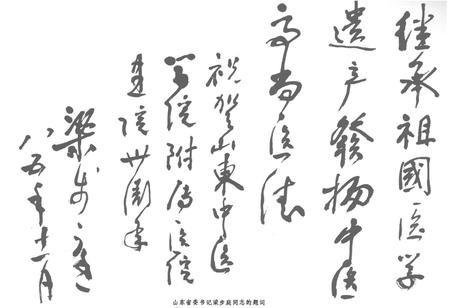 继承祖國医学
遗产發扬中医
高尚医德
祝贺山東中医
学院附属医院
建院卅周年
梁步庭
八五年十一月
山东省委书记梁步庭同志的题词